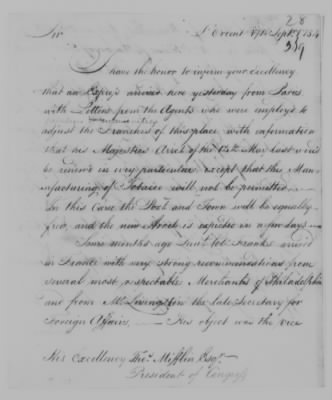 28
Sir
L'Orient 17th Septr. 1784
39
I have the honor to inform your Excellency
that an Express arrived here yesterday from Paris
with Letters from the Agents who were employed to
adjust the Franchises of this place, with information
that his Majesties Arret of the 14th May last would
be renewed in every particular except that the Man-
ufacturing of Tobacco will not be permitted —
In this Case the Port and Town will be equally
free, and the new Arret is expected in a few days —
Some months ago Lieut. Col. Franks arrived
in France with very strong recommendations from
several most respectable Merchants of Philadelphia
and from Mr. Livingston the late Secretary for
Foreign Affairs, — His object was the Vice
His Excellency Thos. Mifflin Esqr.
President of Congress